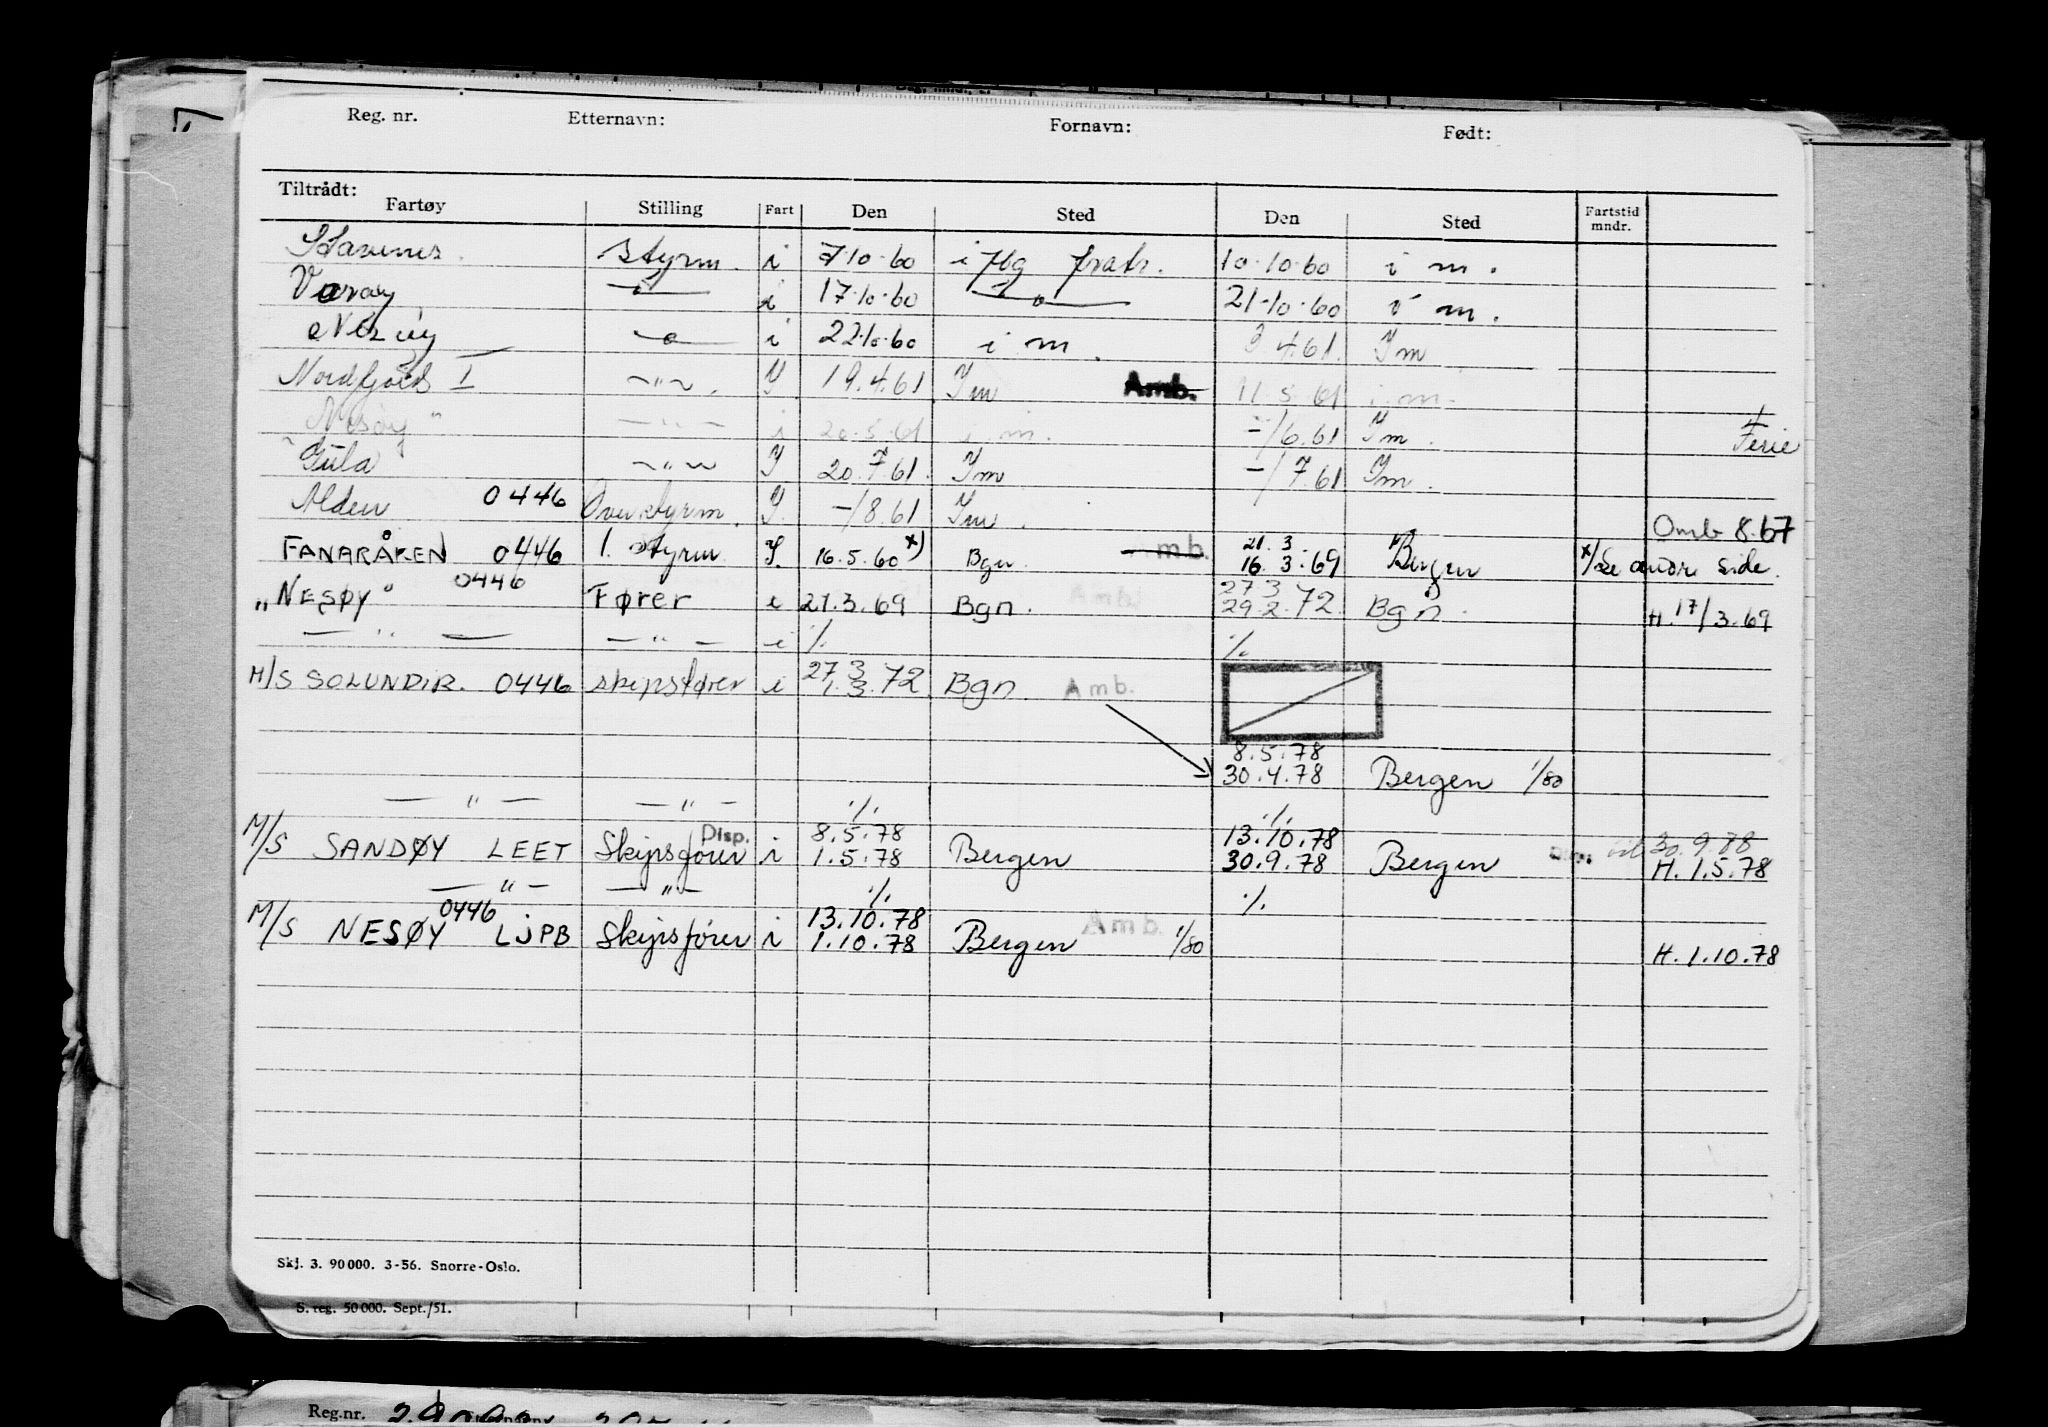 Reg. nr. Etternavn: Fornavn: Født:
Tiltrådt:
Fartøy Stilling Fart Den Sted Den Sted Fartstid mndr.
Stavenes styrm. i 7-10-60 i 10-10-60 i m.
Varøy —"— i 17-10-60 —"— 21-10-60 i m.
Nesøy —"— i 22-10-60 i m. 3.4.61. Im
Nordfjord I —"— . Y 19.4.61 Im Amb. 11.5.61 i m.
Nesøy " —"— i 20.5.61 i m. -/6.61 Im. Ferie
Gula —"— Y 20.7.61. Im -/7.61 Im.
Alden 0446 Overstyrm. Y. -/8.61 Im. Omb 8.67
FANARÅKEN 0446 1. styrm Y. 16.5.60 x) Bgn. mb. 21.3. 16.3.69 Bergen x/ Se andre side.
„NESØY" 0446 Fører i 21.3.69 Bgn. Amb. 27 3 29.2.72. Bgn. H. 17/3.69
— " — — " — i ./. ./.
M/S SOLUNDIR. 0446 skipsfører i 27 3 1.3.72. Bgn. Amb.
8.5.78
30.4.78 Bergen 1/80
— " — — " — ./. ./.
M/S SANDØY LEET Skipsfører Disp. i 8.5.78 1.5.78 Bergen 13.10.78 30.9.78 Bergen til 30.9.88 H. 1.5.78
— " — — " — ./. ./.
M/S NESØY 0446 LJPB Skipsfører i 13.10.78 1.10.78 Bergen Amb. 1/80 H. 1.10.78
Skj. 3. 90000. 3-56. Snorre-Oslo.
S. reg. 50000. Sept./51.
Reg.nr.